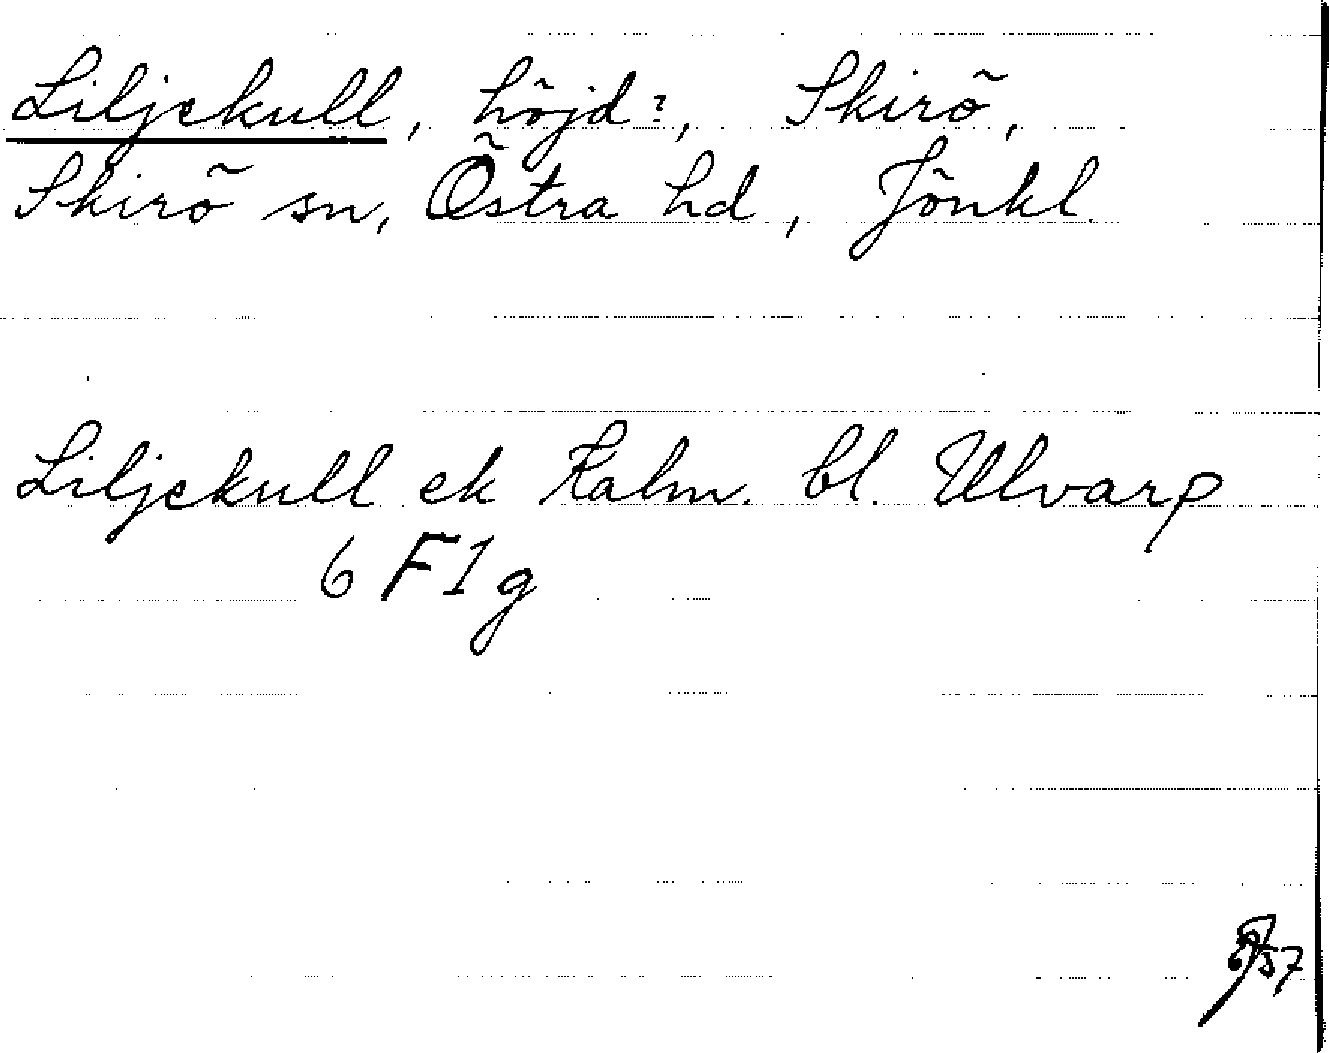 Liljekull, höjd?, Skirö,
Skirö sn, Östra hd, Jönkl.
Liljekull ek Kalm. bl. Ulvarp
6 F1g